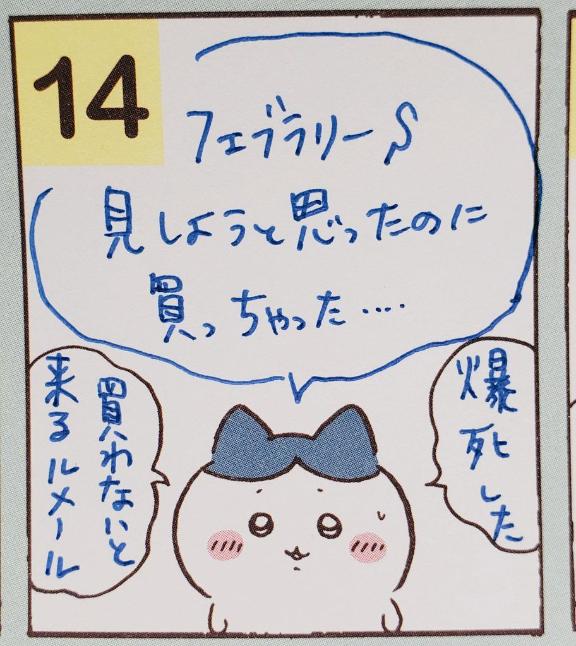 14
フェブラリーS
見しようと思ったのに
買っちゃった....
爆死した
買わないと
来るルメール